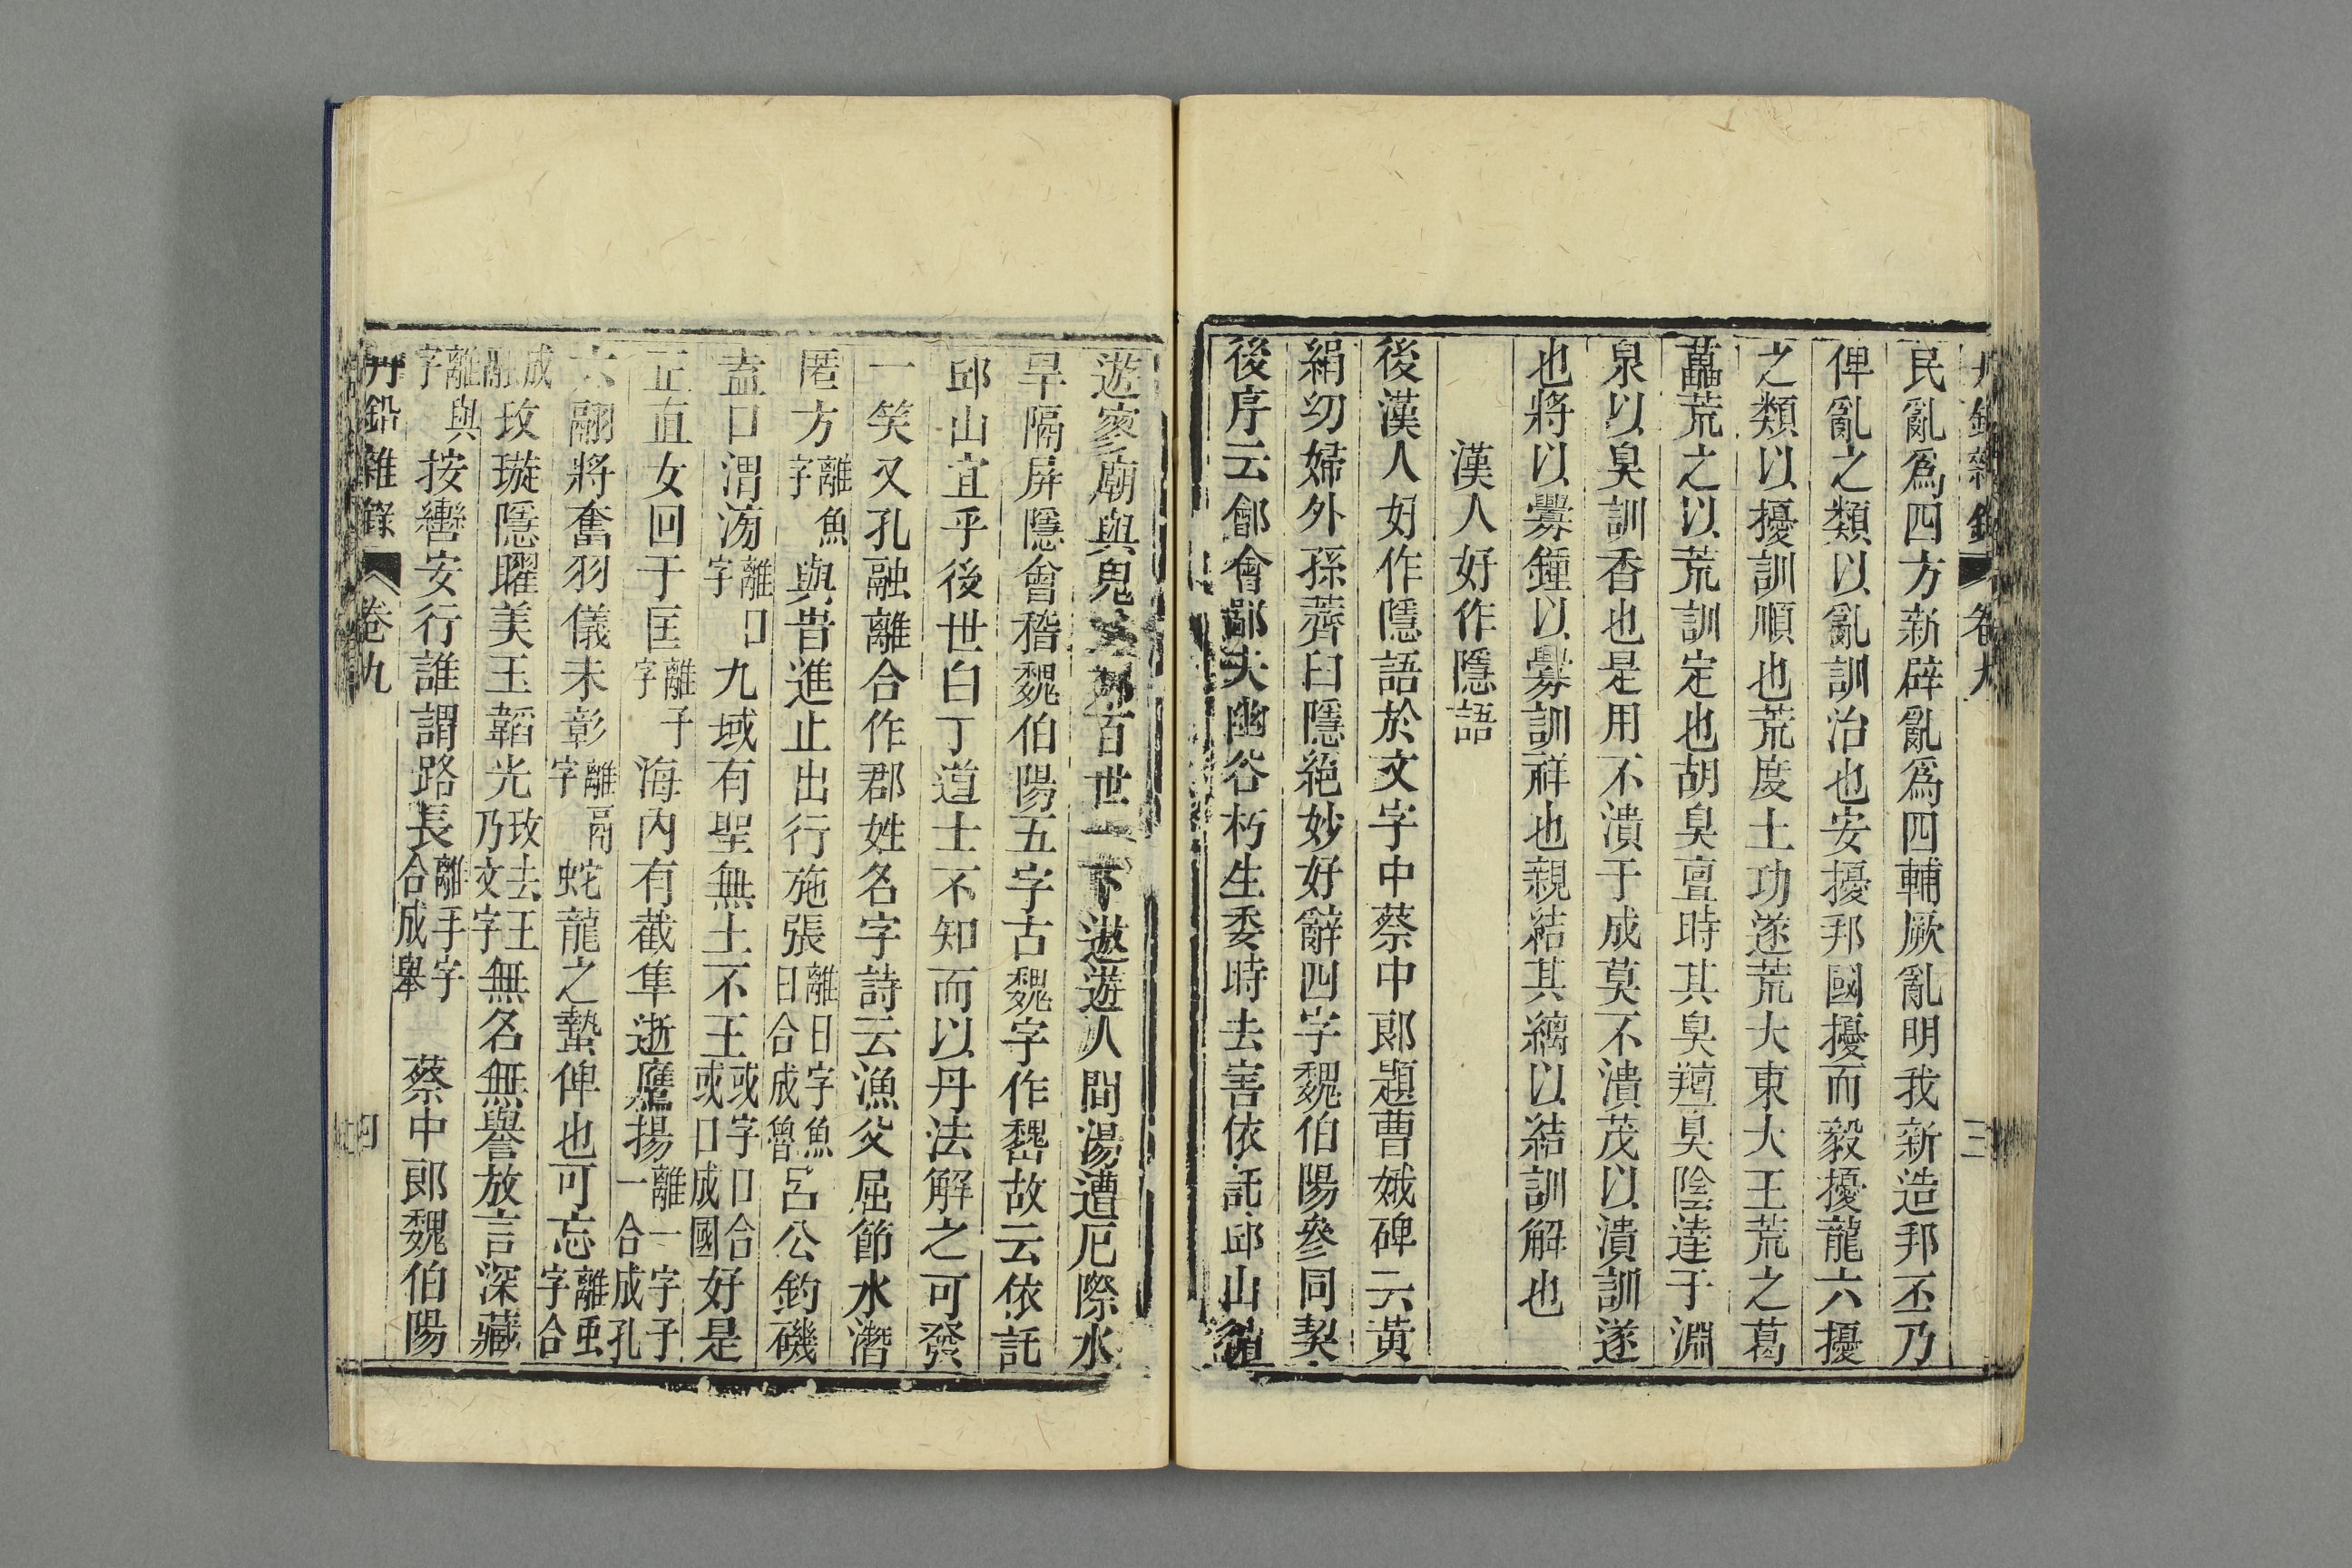 民亂爲四方新辟亂爲四輔厥亂明我新造邦丕乃
俾亂之類以亂訓治也安擾邦國擾而毅擾龍六擾
之類以擾訓順也荒度土功遂荒大東大王荒之葛
藟荒之以荒訓定也胡臭亶時其臭羶臭陰達于淵
泉以臭訓香也是用不潰于成莫不潰茂以潰訓遂
也將以釁鍾以釁訓祥也親結其縭以結訓解也
漢人好作隱語
後漢人好作隱語於文字中蔡中郎題曹娥碑云黃
絹幼婦外孫虀臼隱絕妙好辭四字魏伯陽參同契
後序云鄶會鄙夫幽谷朽生委時去害依託邱山
遊寥廓與鬼百世一下遨遊人間湯遭厄際水
旱隔屏隱會稽魏伯陽五字古魏字作巍故云依託
邱山宜乎後世白丁道士不知而以丹法解之可發
一笑又孔融離合作郡姓名字詩云漁父屈節水潛
匿方離魚字與旹進止出行施張離日字魚日合成魯呂公釣磯
盍口渭㳍離口字九域有聖無土不王或字口合或口成國好是
正直女回于匡離子字海內有截隼逝鷹揚離一字子一合成孔
六翮將奮羽儀未彰離鬲字蛇龍之蟄俾也可忘離虫字合
成融玫璇隱曜美玉韜光玫去王乃文字無名無譽放言深藏
離與字按轡安行誰謂路長離手字合成舉 蔡中郎魏伯陽
丹鉛雜錄 卷九 四